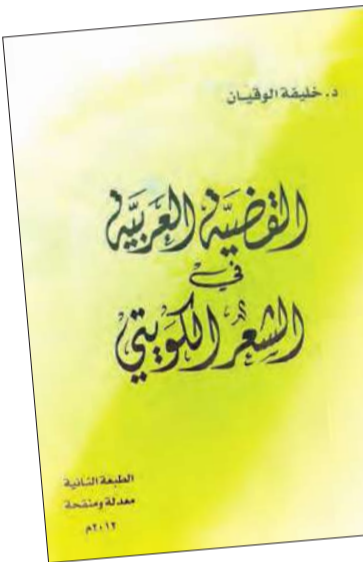 د. خليفة الوقيان
القضيَّة العَربيَّة
في
الشعر الكويتي
الطبعة الثانية
معدلة ومنقحة
٢٠١٢م